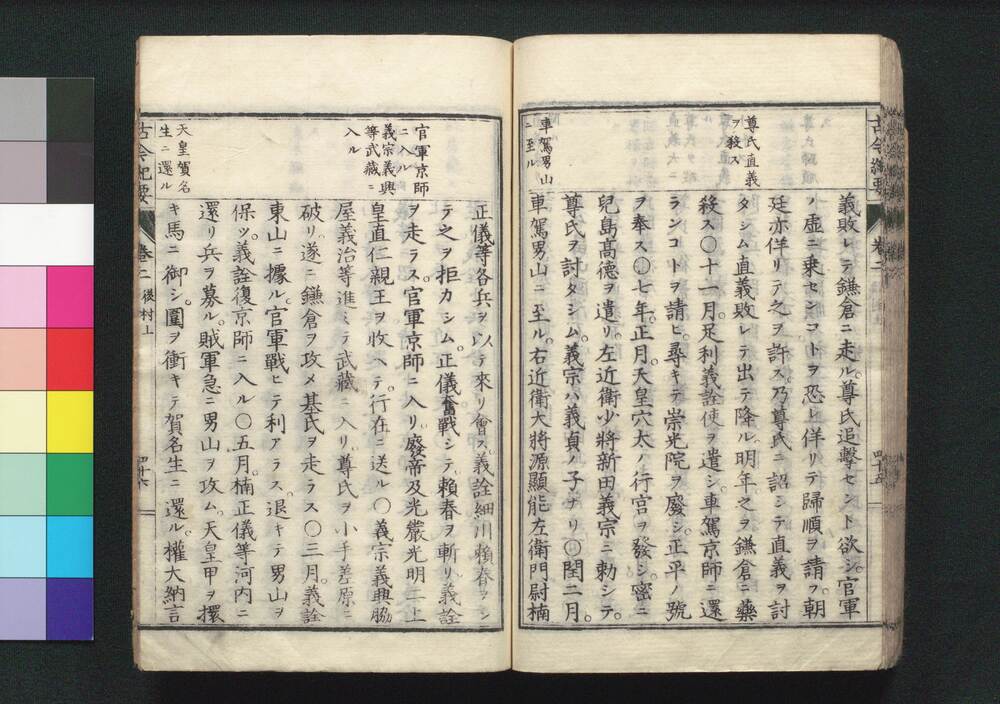 尊氏直義
ヲ殺ス
車駕男山
ニ至ル
義敗レテ鎌倉ニ走ル。尊氏追擊セント欲シ。官軍
ノ虛ニ乗センコトヲ恐レ佯リテ歸順ヲ請フ。朝
廷亦佯リテ之ヲ許ス。乃尊氏ニ詔シテ直義ヲ討
タシム直義敗レテ出テ降ル。明年之ヲ鎌倉ニ藥
殺ス〇十一月。足利義詮使ヲ遣シ。車駕京師ニ還
ランコトヲ請ヒ。尋キテ崇光院ヲ廢シ。正平ノ號
ヲ奉ス〇七年。正月。天皇穴太ノ行宮ヲ發シ。密ニ
兒島高德ヲ遣リ。左近衛少將新田義宗ニ勅シテ。
尊氏ヲ討タシム。義宗ハ義貞ノ子ナリ〇閏二月。
車駕男山ニ至ル。右近衛大將源顯能左衛門尉楠
古今紀要
卷二
四十五
官軍京師
ニ入ル
義宗義興
等武藏ニ
入ル
天皇賀名
生ニ還ル
正儀等各兵ヲ以テ來リ會ス。義詮細川賴春ヲシ
テ之ヲ拒カシム。正儀奮戰シテ。賴春ヲ斬リ義詮
ヲ走ラス。官軍京師ニ入リ。廢帝及光嚴光明二上
皇直仁親王ヲ收ヘテ。行在ニ送ル〇義宗義興脇
屋義治等進ミテ武藏ニ入リ。尊氏ヲ小手差原ニ
破リ。遂ニ鎌倉ヲ攻メ基氏ヲ走ラス〇三月。義詮
東山ニ據ル。官軍戰ヒテ利アラス。退キテ男山ヲ
保ツ。義詮復京師ニ入ル〇五月。楠正儀等河内ニ
還リ兵ヲ募ル。賊軍急ニ男山ヲ攻ム。天皇甲ヲ擐
キ馬ニ御シ。圍ヲ衝キテ賀名生ニ還ル。權大納言
古今紀要
卷二
後村上
四十六